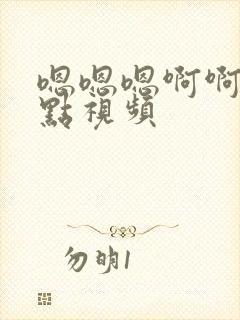 嗯嗯嗯啊啊
點視頻
勿明1